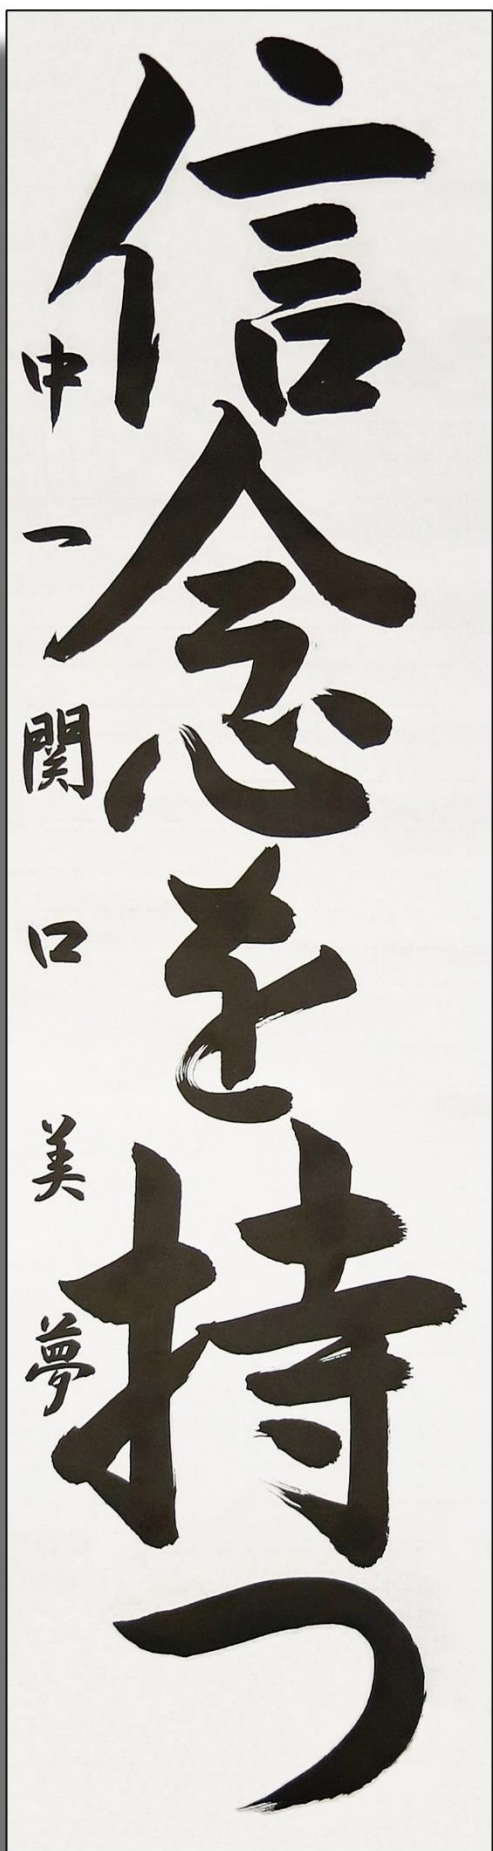 信念を持つ
中一関口美夢